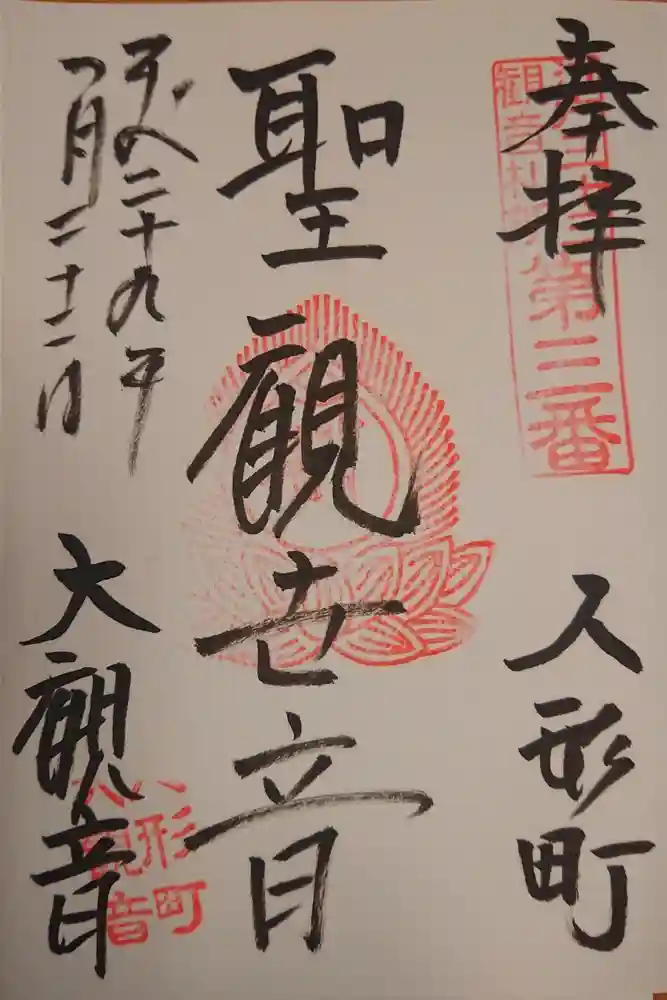 奉拝
観音札所
第三番
人形町
聖観世音
平成二十九年
月二十二日
大観音
人形町
大観音